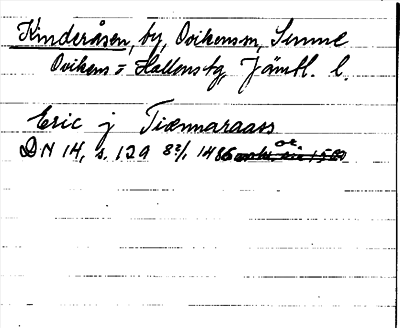 Kinderåsen, by, Ovikensn, Sunne
Ovikens o Hallens tg Jämtl. l.
Eric j Tiænnaraass
DN 14, s. 129 8/1 1486